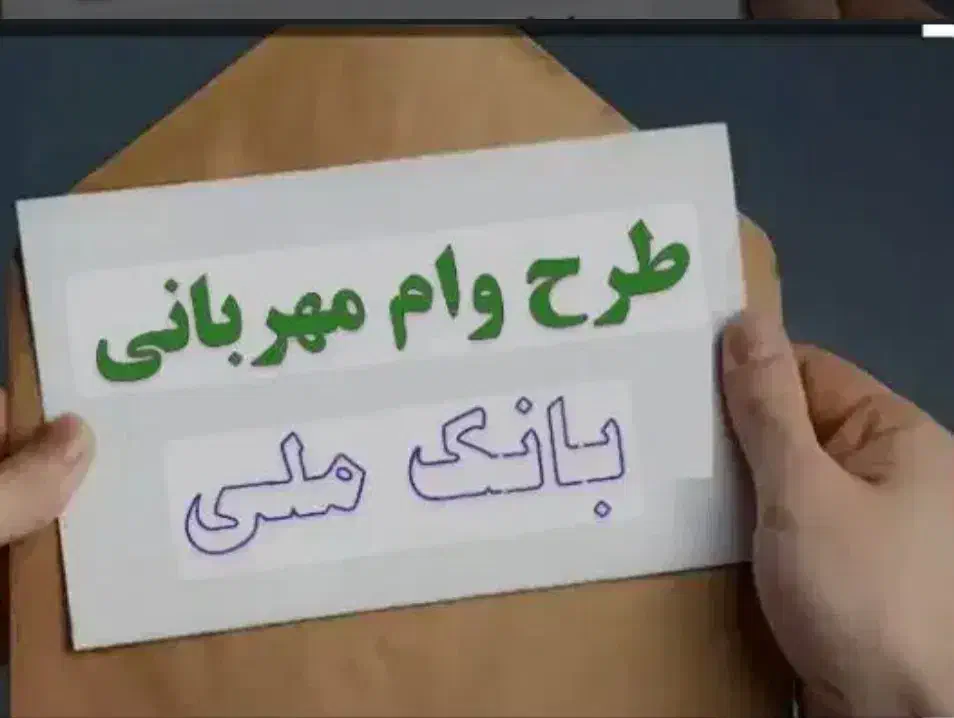 طرح وام مهربانی
بانک ملی